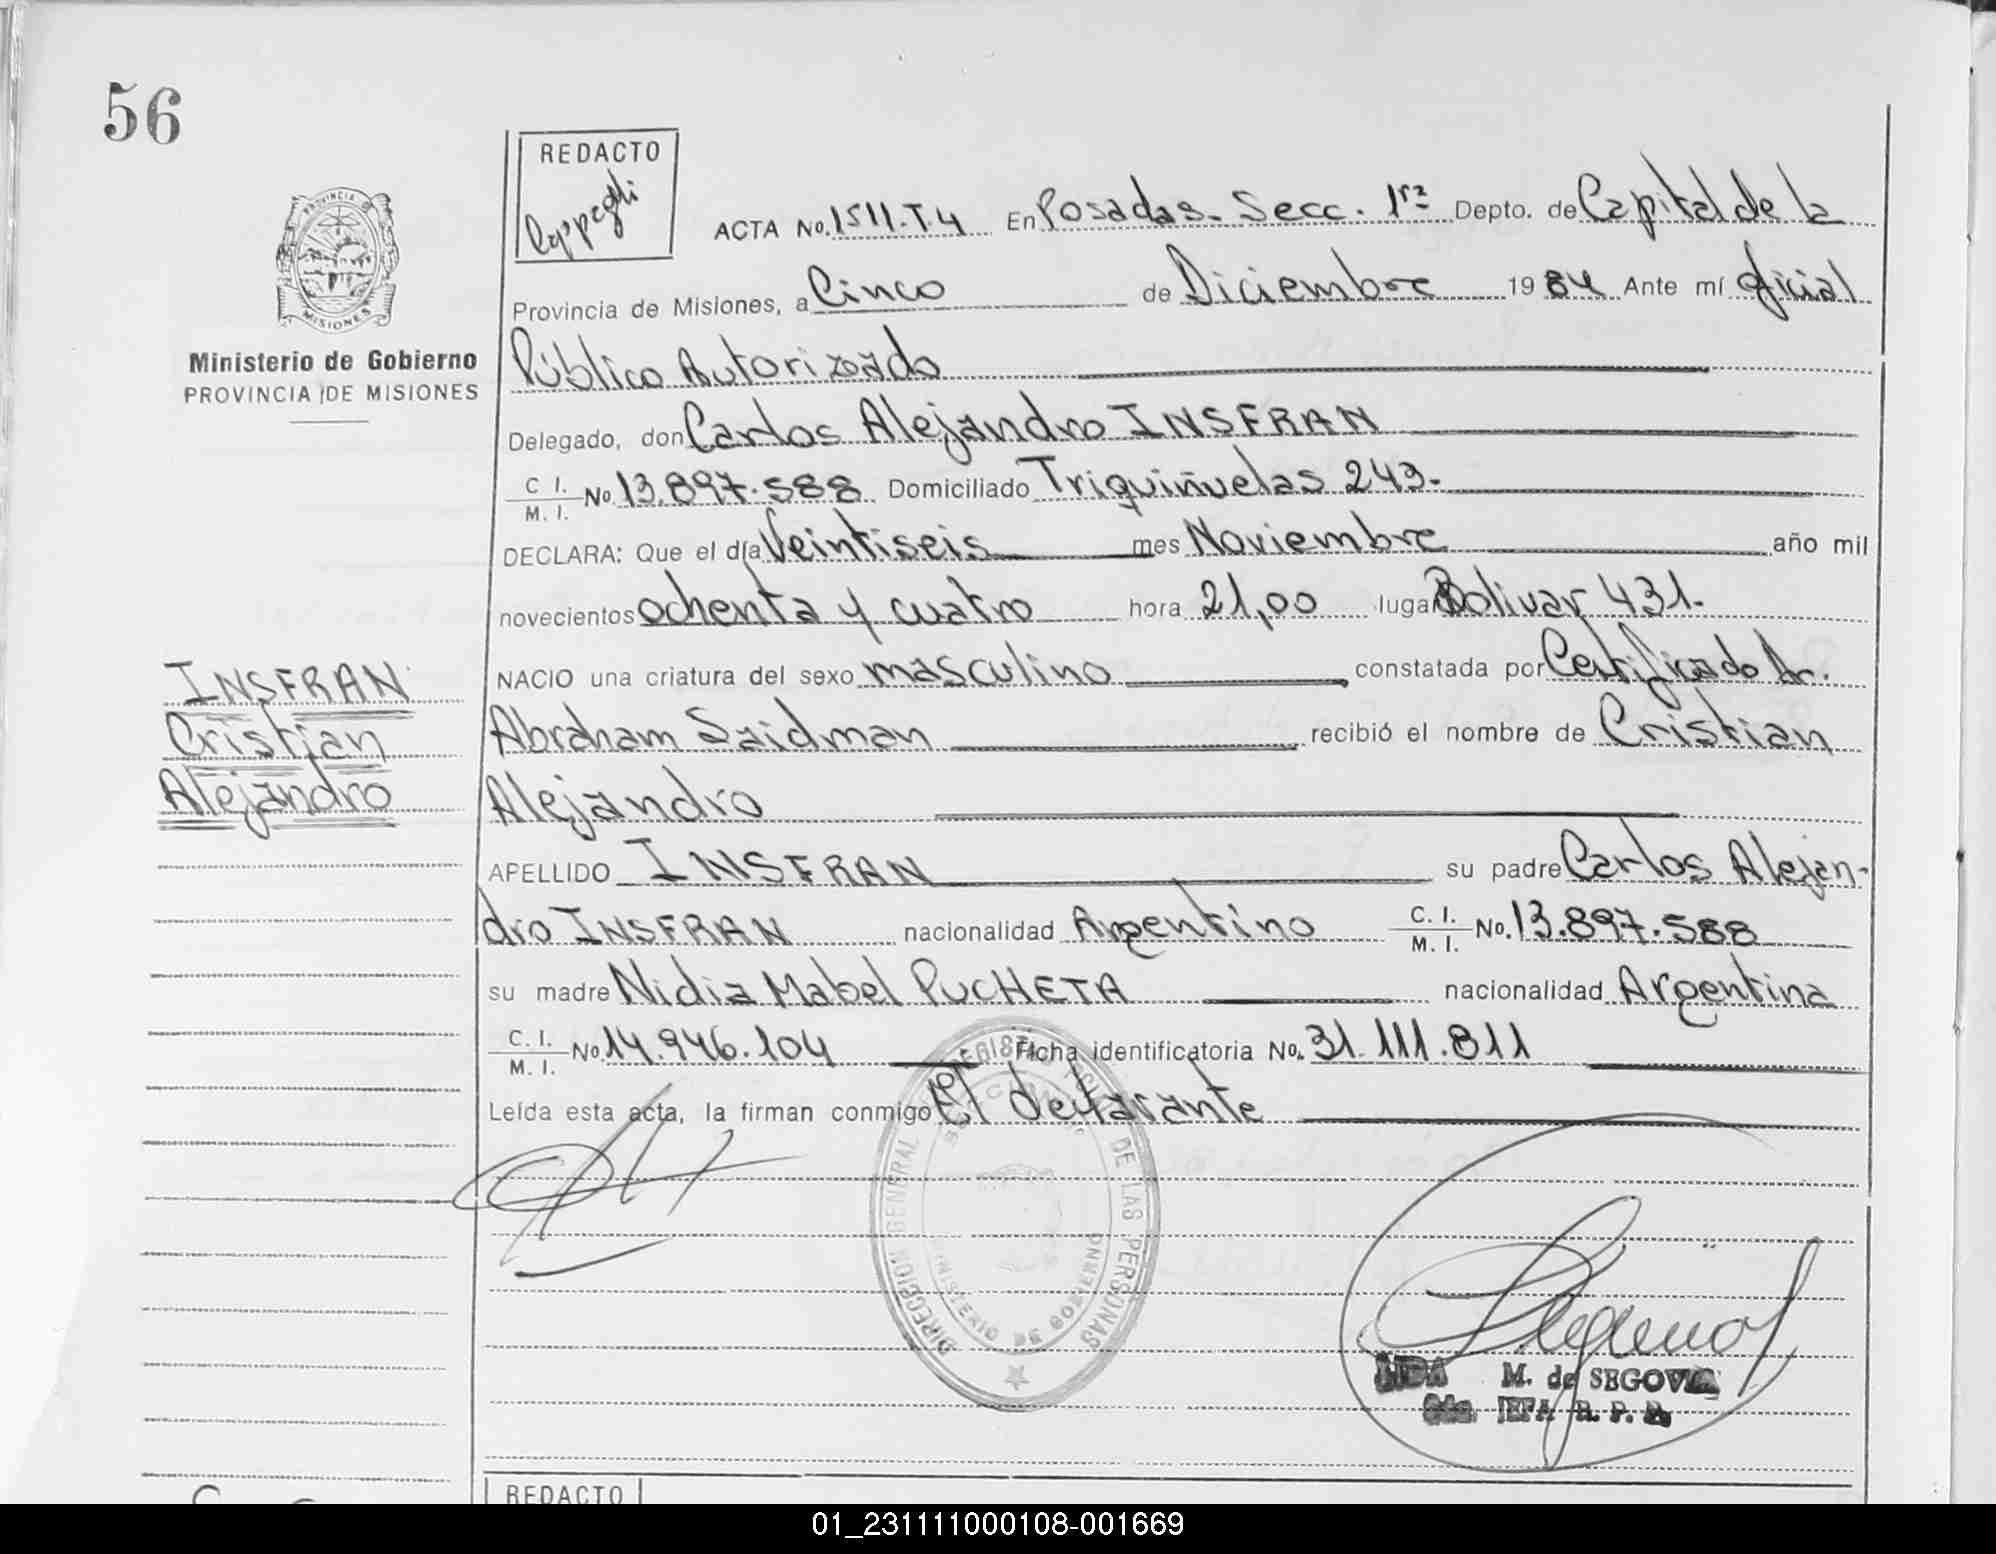 56
REDACTO
PROVINCIA
MISIONES
ACTA No. 1511.T.4 En Posadas. Secc. 1ra Depto. de Capital de la
Provincia de Misiones, a Cinco de Diciembre 1984 Ante mí Oficial
Ministerio de Gobierno
PROVINCIA DE MISIONES
Público Autorizado
Delegado, don Carlos Alejandro INSFRAN
C. I. M. I. No. 13.897.588 Domiciliado Triquiñuelas 243.
DECLARA: Que el día Veintiseis mes Noviembre año mil
novecientos ochenta y cuatro hora 21,00 lugar Bolivar 431.
INSFRAN
Cristian
Alejandro
NACIO una criatura del sexo masculino constatada por Certificado Dr.
Abraham Saidman recibió el nombre de Cristian
Alejandro
APELLIDO INSFRAN su padre Carlos Alejan-
dro INSFRAN nacionalidad Argentino C. I. M. I. No. 13.897.588
su madre Nidia Mabel PUCHETA nacionalidad Argentina
C. I. M. I. No. 14.946.104 Ficha identificatoria No. 31.111.811
Leída esta acta, la firman conmigo El declarante
DIRECCION GENERAL DE LAS PERSONAS
MINISTERIO DE GOBIERNO
M. de SEGOVIA
JEFA R. P.
REDACTO
01_231111000108-001669